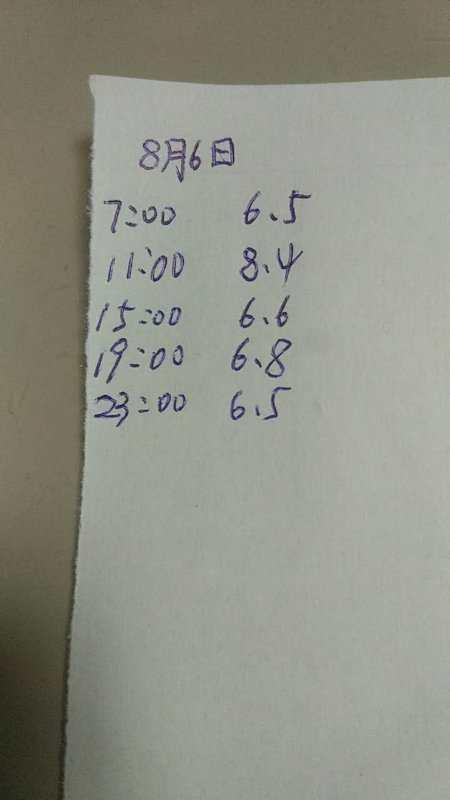 8月6日
7:00 6.5
11:00 8.4
15:00 6.6
19:00 6.8
23:00 6.5